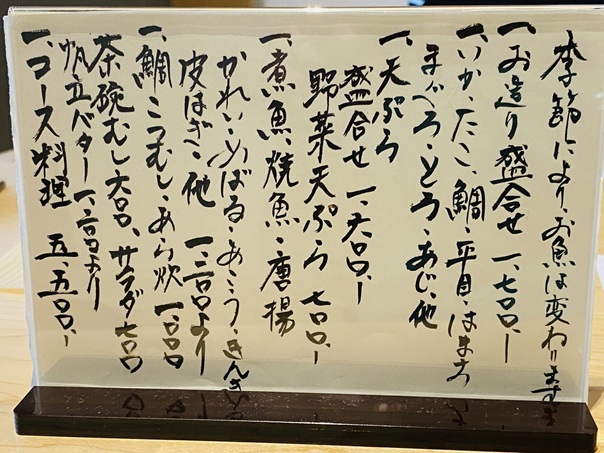 季節により、お魚は変わります
一、お造り盛合せ 一、七〇〇、ー
一、いか、たこ、鯛、平目、はまち
まぐろ、とろ、あじ、他
一、天ぷら
盛合せ 一、六〇〇、ー
野菜天ぷら 七〇〇、ー
一、煮魚、焼魚、唐揚
かれい、めばる、あこう、きんき
皮はぎ、他 一、二〇〇より
一、鯛こつむし、あら炊 一、〇〇〇
茶碗むし 六〇〇、サラダ 七〇〇
帆立バター 一、二〇〇より
一、コース料理 五、五〇〇、